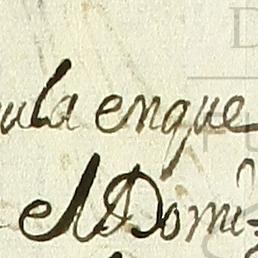 ula enque
el Domi=